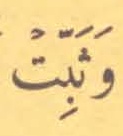 وَثَبِّتْ